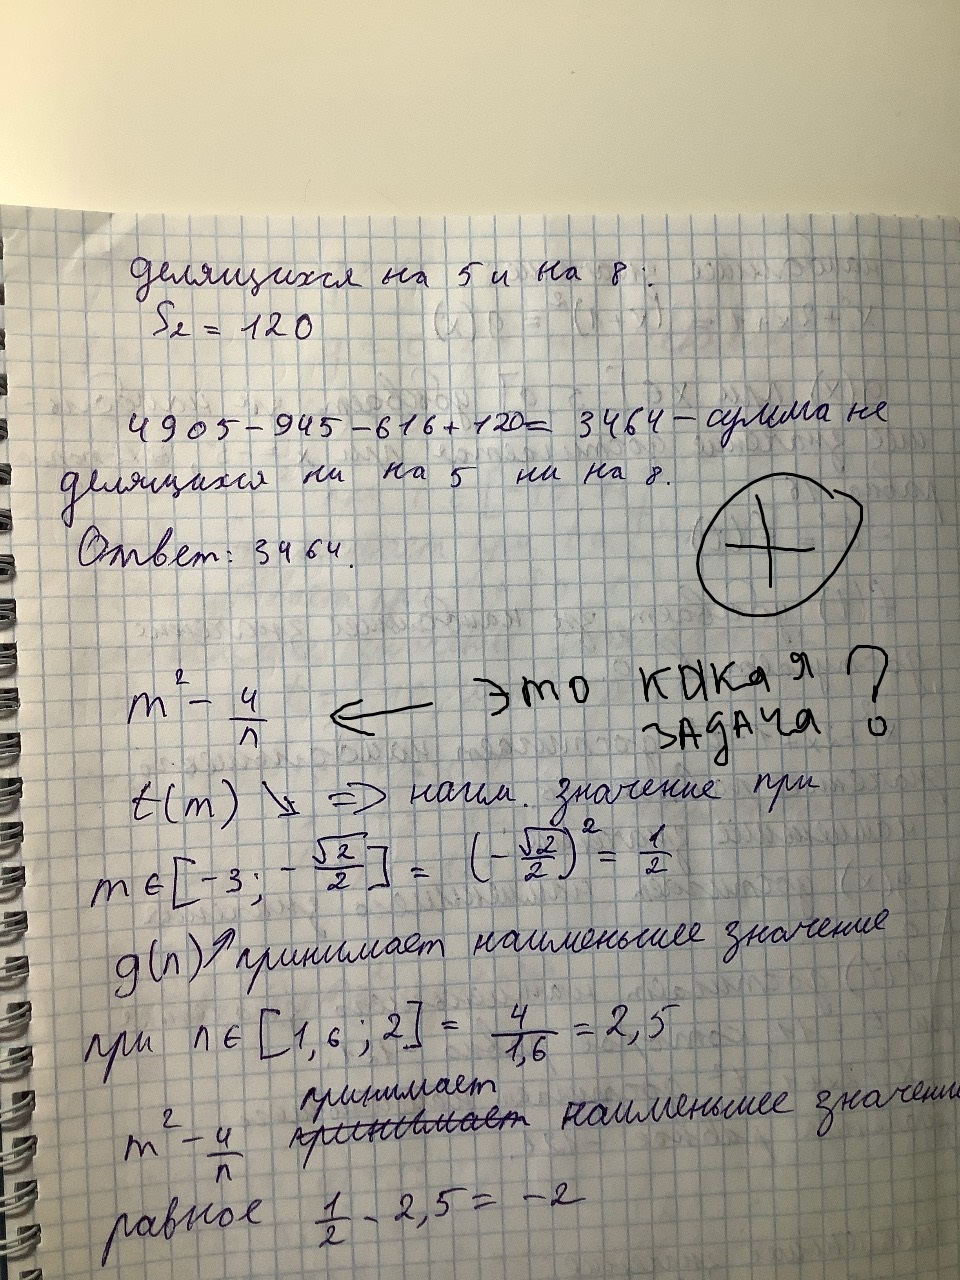 делящихся на 5 и на 8:
S₂ = 120
4905 - 945 - 616 + 120 = 3464 - сумма не
делящихся ни на 5 ни на 8.
Ответ: 3464.
m² - 4/n ← ЭТО КЫКАЯ ЗАДАЧА ?
t(m) ↘ => наим. значение при
m ∈ [-3; -√2/2] = (-√2/2)² = 1/2
g(n) ↗ принимает наименьшее значение
при n ∈ [1,6; 2] = 4/1,6 = 2,5
принимает
m² - 4/n принимает наименьшее значение
равное 1/2 - 2,5 = -2